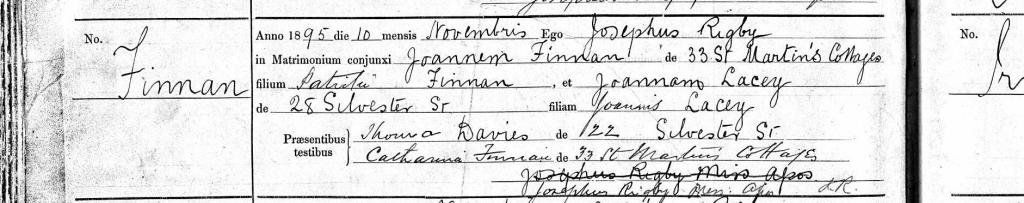 No.
Finnan
Anno 1895 die 10 mensis Novembris Ego Josephus Rigby
in Matrimonium conjunxi Joannem Finnan de 33 St Martin's Cottages
filium Patritii Finnan, et Joannam Lacey
de 28 Silvester St filiam Joannis Lacey
Præsentibus testibus
Thoma Davies de 122 Silvester St
Catharina Finnan de 33 St Martin's Cottages
Josephus Rigby Miss Apos
Josephus Rigby Miss: Apos J.R.
No.